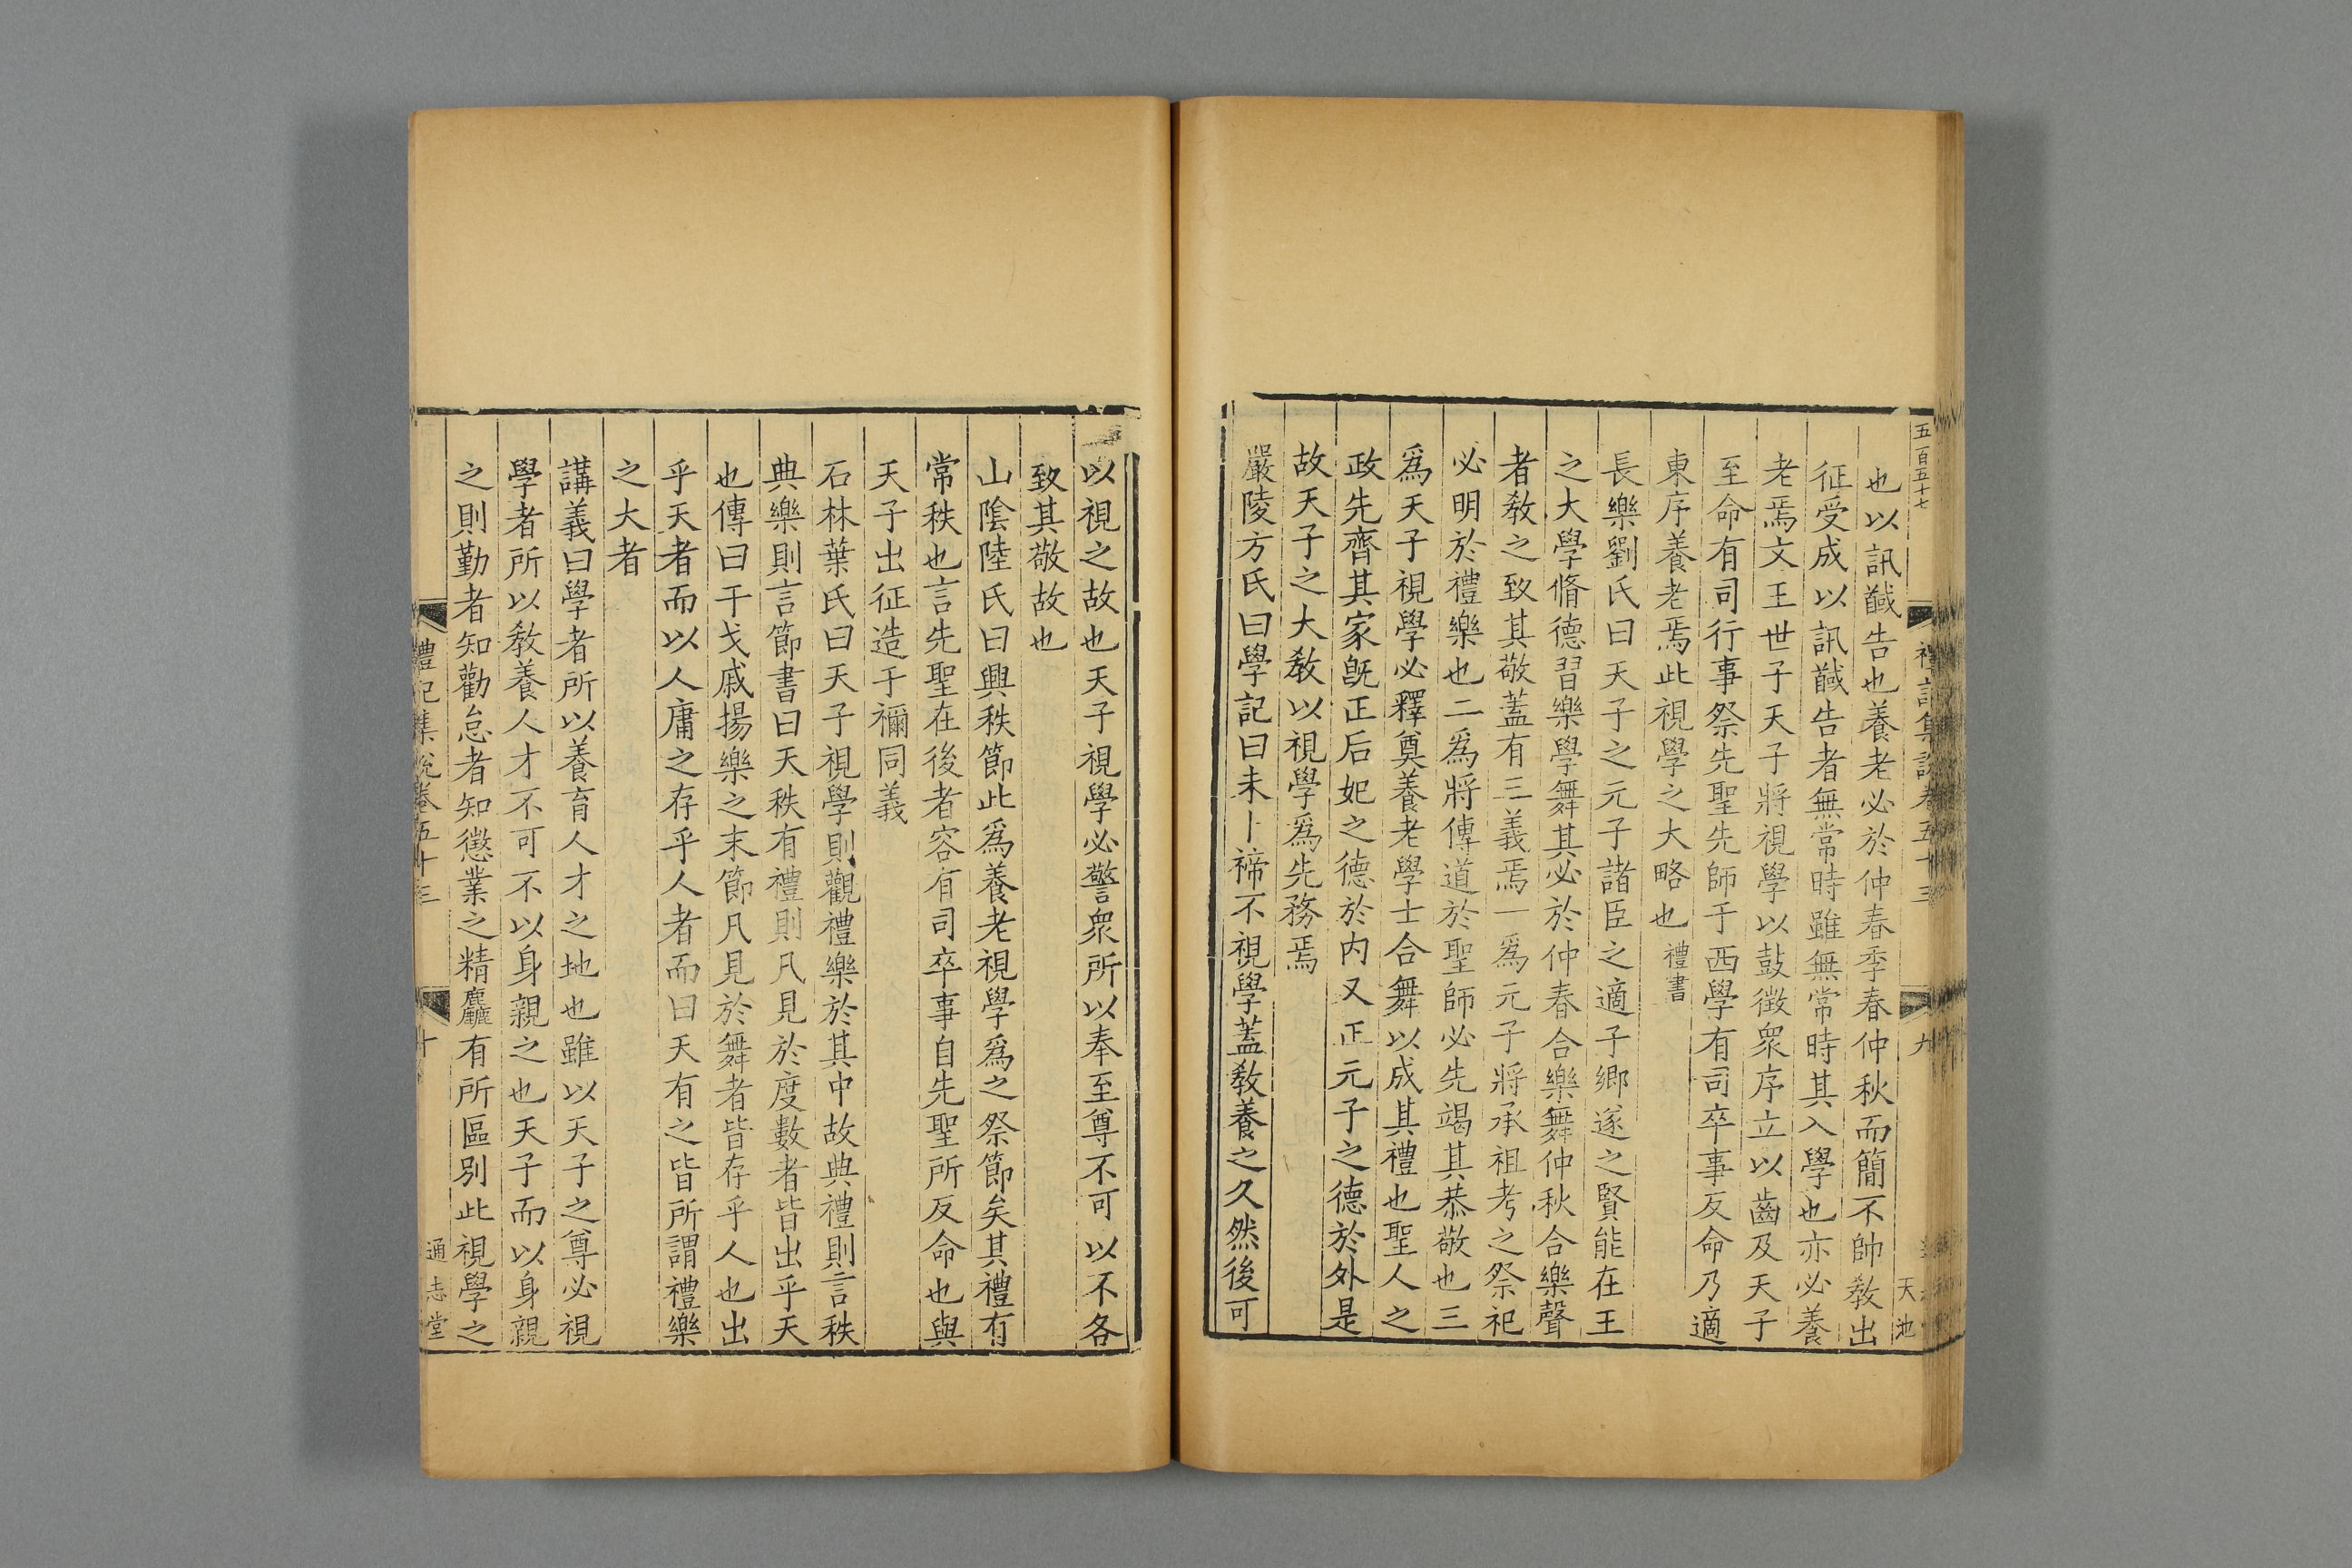 五百五十七
禮記集說卷五十三
九
天池
也以訊馘告也養老必於仲春季春仲秋而簡不帥敎出
征受成以訊馘告者無常時雖無常時其入學也亦必養
老焉文王世子天子將視學以鼓徵衆序立以齒及天子
至命有司行事祭先聖先師于西學有司卒事反命乃適
東序養老焉此視學之大略也禮書
長樂劉氏曰天子之元子諸臣之適子鄉遂之賢能在王
之大學脩德習樂學舞其必於仲春合樂舞仲秋合樂聲
者敎之致其敬蓋有三義焉一爲元子將承祖考之祭祀
必明於禮樂也二爲將傳道於聖師必先竭其恭敬也三
爲天子視學必釋奠養老學士合舞以成其禮也聖人之
政先齊其家旣正后妃之德於内又正元子之德於外是
故天子之大敎以視學爲先務焉
嚴陵方氏曰學記曰未卜禘不視學蓋敎養之久然後可
以視之故也天子視學必警衆所以奉至尊不可以不各
致其敬故也
山陰陸氏曰興秩節此爲養老視學爲之祭節矣其禮有
常秩也言先聖在後者容有司卒事自先聖所反命也與
天子出征造于禰同義
石林葉氏曰天子視學則觀禮樂於其中故典禮則言秩
典樂則言節書曰天秩有禮則凡見於度數者皆出乎天
也傳曰干戈戚揚樂之末節凡見於舞者皆存乎人也出
乎天者而以人庸之存乎人者而曰天有之皆所謂禮樂
之大者
講義曰學者所以養育人才之地也雖以天子之尊必視
學者所以敎養人才不可不以身親之也天子而以身親
之則勤者知勸怠者知懲業之精麤有所區別此視學之
禮記集說卷五十三
十
通志堂